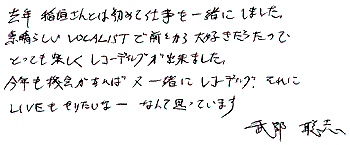 去年 稲垣さんとは初めて仕事を一緒にしました。
素晴らしい VOCALISTで前から大好きだったので
とっても楽しくレコーディングが出来ました。
今年も機会があれば又一緒にレコーディング、それに
LIVEもやりたいなー なんて思っています
武部 聡志